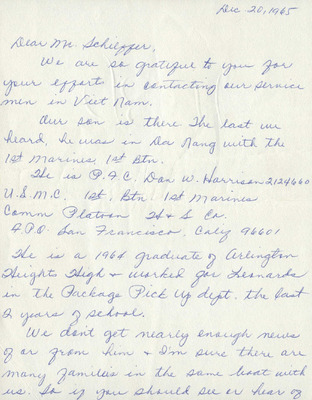 Dec 20, 1965
Dear Mr. Schieffer,
We are so grateful to you for
your efforts in contacting our service
men in Viet Nam.
Our son is there The last we
heard, he was in Da Nang with the
1st Marines, 1st Btn.
He is P.F.C. Don W. Harrison 2124660
U.S.M.C. 1st. Btn. 1st Marines
Comm Platoon H & S Co.
F.P.O. San Francisco, Calif 96601
He is a 1964 graduate of Arlington
Heights High & worked for Leonards
in the Package Pick Up dept. the last
2 years of school.
We don't get nearly enough news
of or from him & I'm sure there are
many families in the same boat with
us. So if you should see or hear of